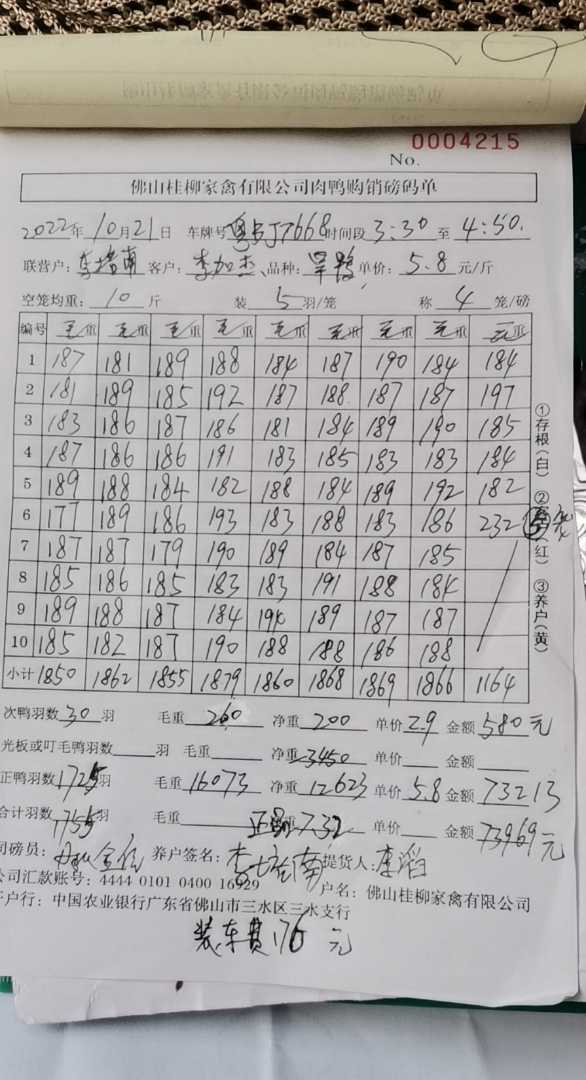 0004215
No.
佛山桂柳家禽有限公司肉鸭购销磅码单
2022年10月21日 车牌号 时间段3:30至4:50.
联营户: 客户:李加杰 品种:旱鸭 单价:5.8元/斤
空笼均重:10斤 装5羽/笼 称4笼/磅
编号 毛重 毛重 毛重 毛重 毛重 毛重 毛重 毛重 毛重
1 187 181 189 188 184 187 190 184 184
2 181 189 185 192 187 188 187 187 197
3 183 186 187 186 181 184 189 190 185
4 187 186 186 191 183 185 183 183 184
5 189 188 184 182 188 184 189 192 182
6 177 189 186 193 183 188 183 186 232
7 187 187 179 190 189 184 187 185
8 185 186 185 183 183 191 188 184
9 189 188 187 184 194 189 187 187
10 185 182 187 190 188 188 186 188
小计 1850 1862 1855 1879 1860 1868 1869 1866 1164
①存根(白) ②(红) ③养户(黄)
次鸭羽数30羽 毛重260 净重200 单价2.9 金额580元
光板或叮毛鸭羽数 羽 毛重 净重3450 单价 金额
正鸭羽数1725羽 毛重16073 净重12623 单价5.8 金额73213
合计羽数1755羽 毛重 净重7.32 单价 金额73969元
司磅员: 养户签名:李培南 提货人:李滔
公司汇款账号: 4444 0101 0400 16929 户名: 佛山桂柳家禽有限公司
开户行: 中国农业银行广东省佛山市三水区三水支行
装车费176元